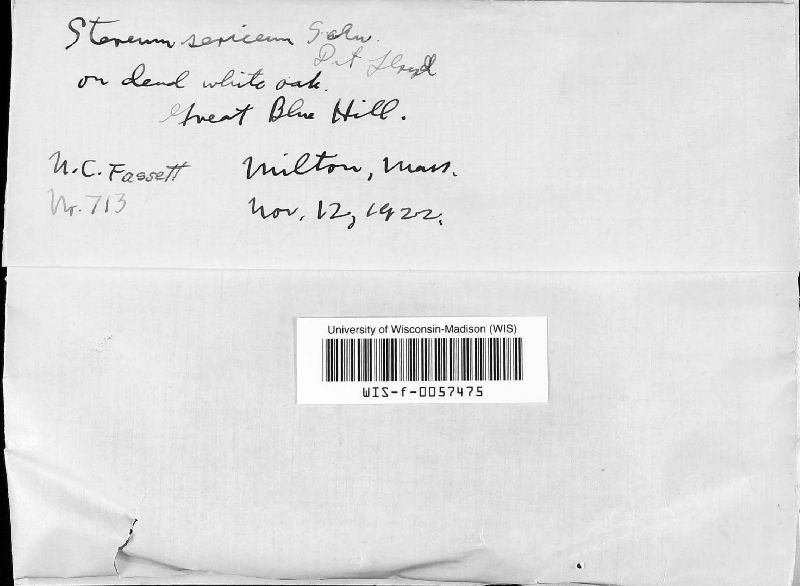 Stereum sericeum Schw.
Det Lloyd
on dead white oak.
Great Blue Hill.
N.C. Fassett Milton, Mass.
No. 713 Nov. 12, 1922.
University of Wisconsin-Madison (WIS)
WIS-f-0057475